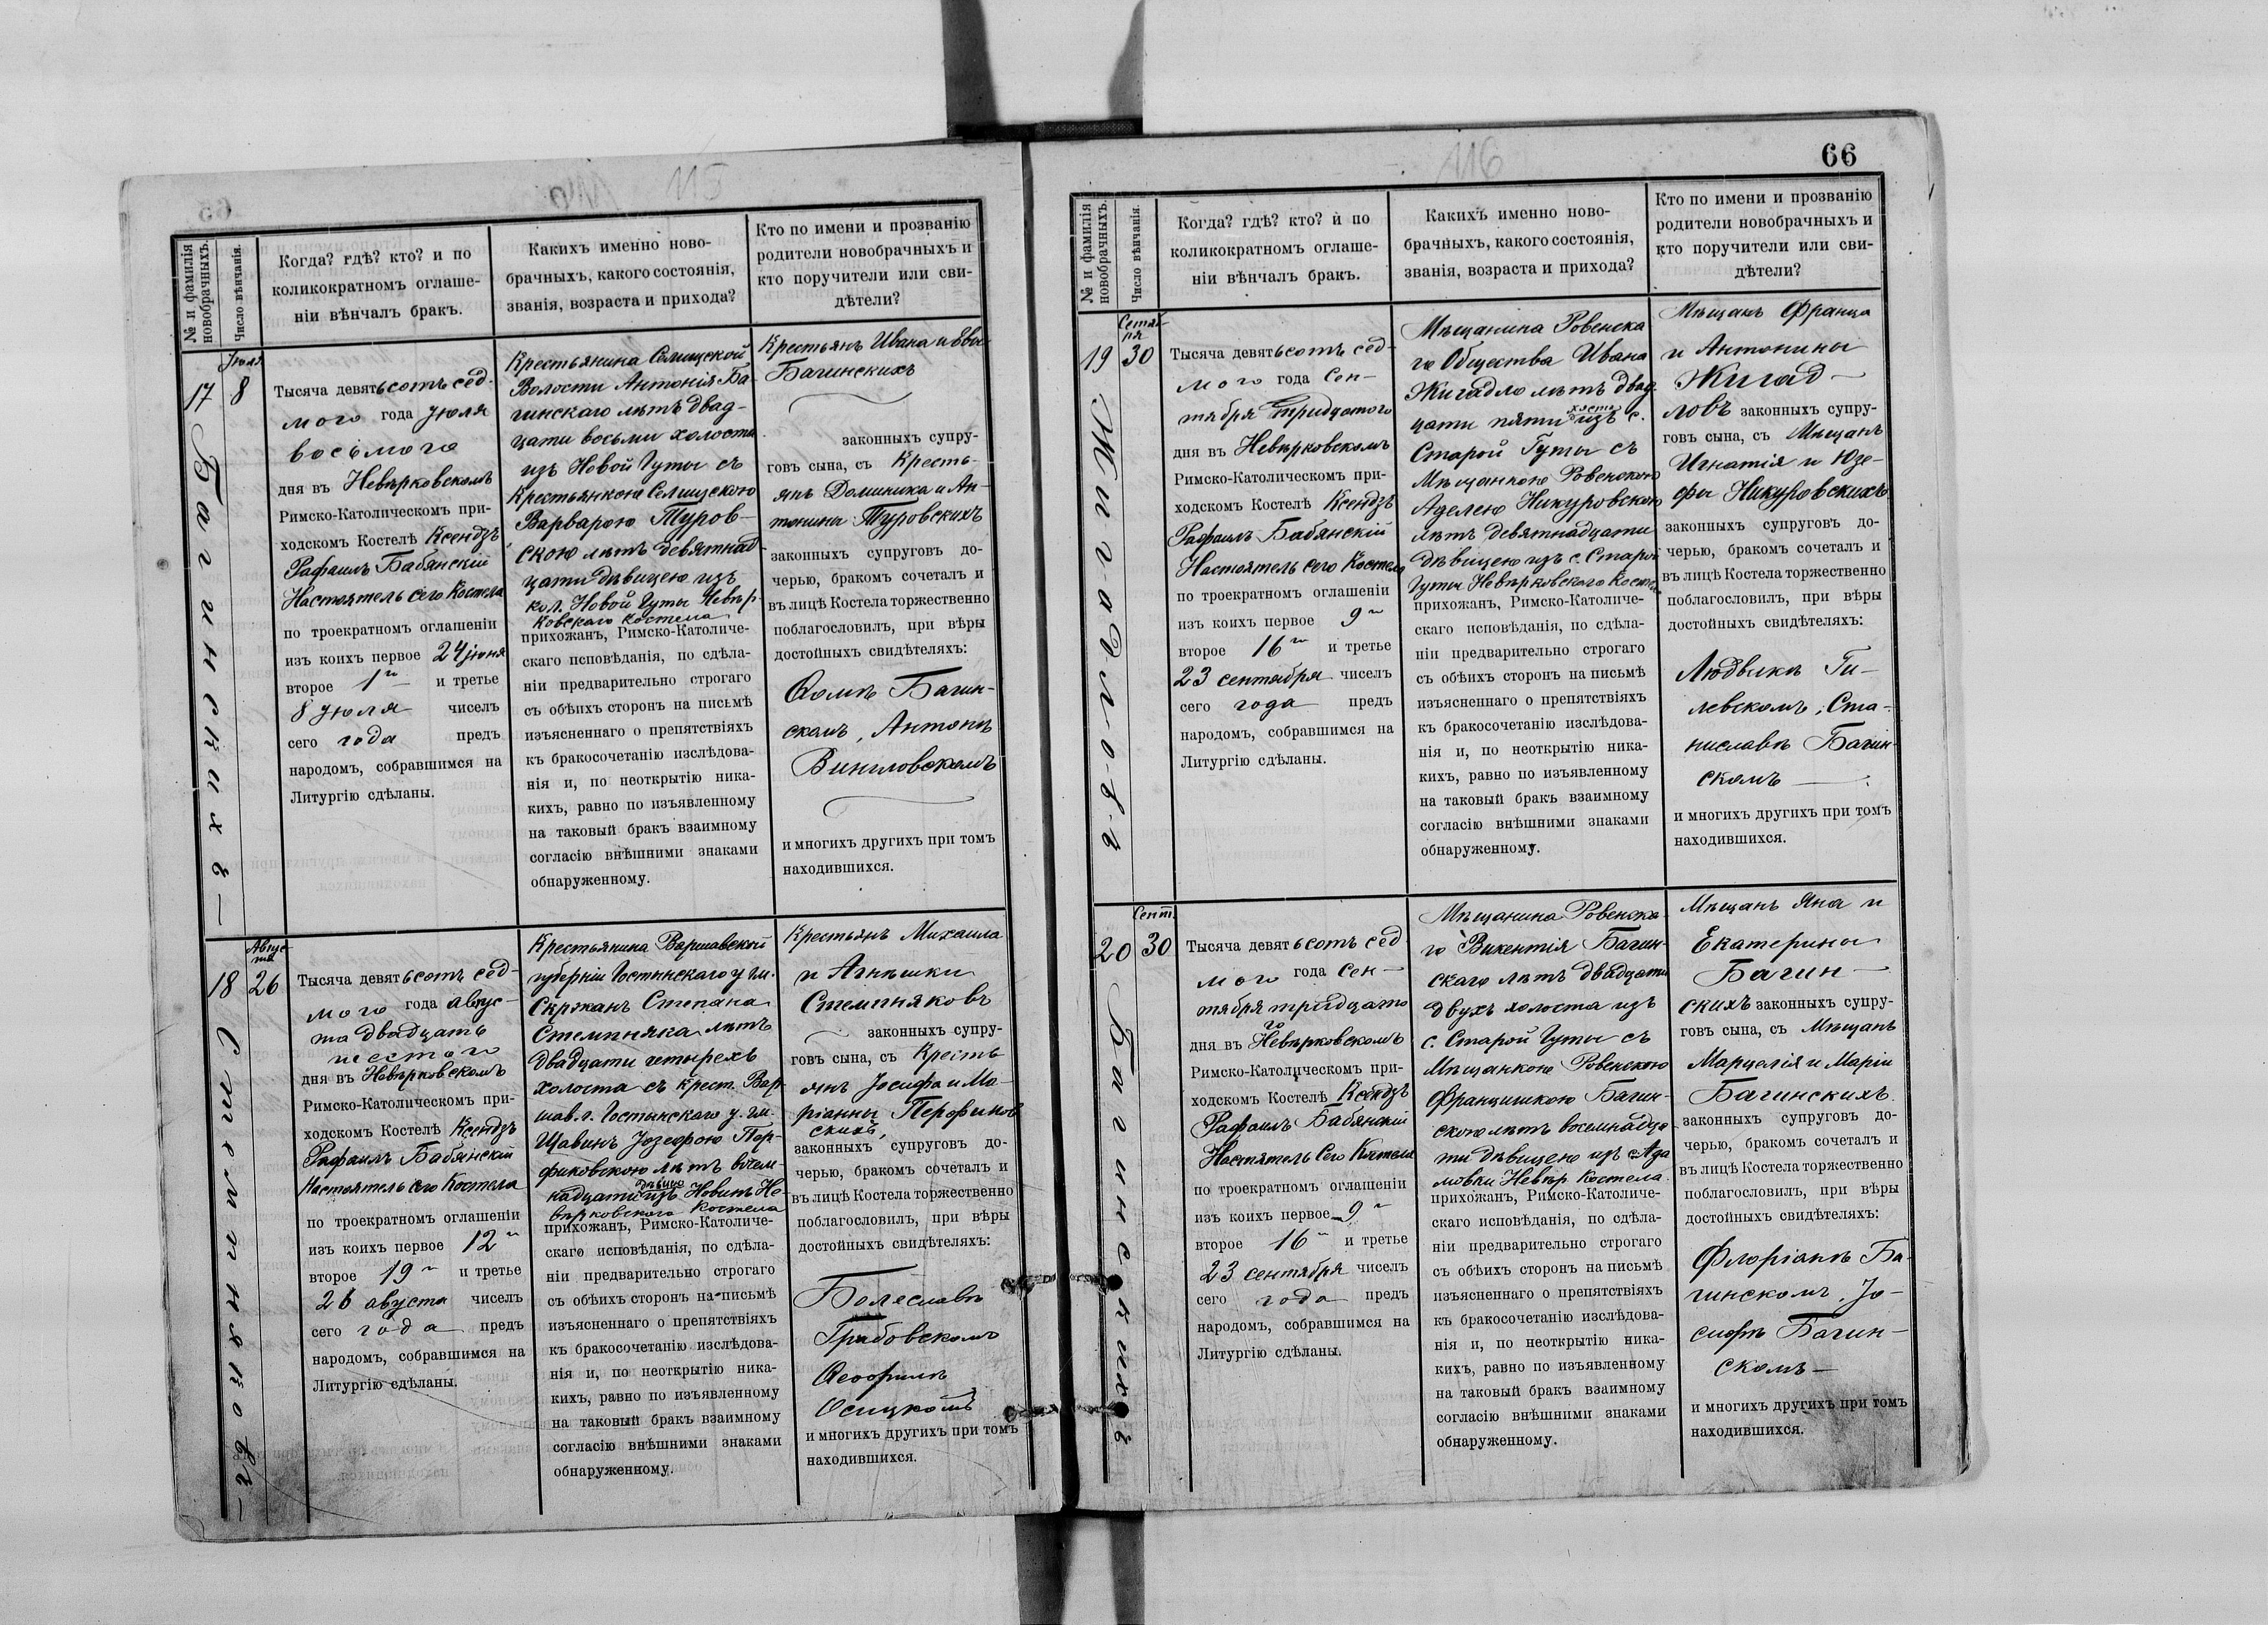 115
№ и фамилія новобрачныхъ.
Число вѣнчанія.
Когда? гдѣ? кто? и по
коликократномъ оглаше-
ніи вѣнчалъ бракъ.
Какихъ именно ново-
брачныхъ, какого состоянія,
званія, возраста и прихода?
Кто по имени и прозванію
родители новобрачныхъ и
кто поручители или сви-
дѣтели?
17
Багинскихъ
Іюля
8
Тысяча девятьсотъ сед-
мого года Іюля
восьмого
дня въ Невѣрковскомъ
Римско-Католическомъ при-
ходскомъ Костелѣ Ксендзъ
Рафаилъ Бабянскій
Настоятель сего Костела
по троекратномъ оглашеніи
изъ коихъ первое 24 іюня
второе 1го и третье
8 Іюля чиселъ
сего года предъ
народомъ, собравшимся на
Литургію сдѣланы.
Крестьянина Селищской
Волости Антонія Ба-
гинскаго лѣтъ двад-
цати восьми холоста
изъ Новой Гуты съ
Крестьянкою Селищскою
Варварою Туров-
скою лѣтъ девятнад
цати дѣвицею изъ
кол. Новой Гуты Невѣр-
ковскаго костела
прихожанъ, Римско-Католиче-
скаго исповѣданія, по сдѣла-
ніи предварительно строгаго
съ обѣихъ сторонъ на письмѣ
изъясненнаго о препятствіяхъ
къ бракосочетанію изслѣдова-
нія и, по неоткрытію ника-
кихъ, равно по изъявленному
на таковый бракъ взаимному
согласію внѣшними знаками
обнаруженному.
Крестьянъ Ивана и Эвы
Багинскихъ
законныхъ супру-
говъ сына, съ Кресть-
янъ Доминика и Ан-
тонины Туровскихъ
законныхъ супруговъ до-
черью, бракомъ сочеталъ и
въ лицѣ Костела торжественно
поблагословилъ, при вѣры
достойныхъ свидѣтеляхъ:
Ѳомѣ Багин-
скомъ, Антонѣ
и многихъ другихъ при томъ
находившихся.
18
Стемпняковъ
Авгус-
та
26
Тысяча девятьсотъ сед-
мого года авгус-
та двадцать
шестого
дня въ Невѣрковскомъ
Римско-Католическомъ при-
ходскомъ Костелѣ Ксендзъ
Рафаилъ Бабянскій
Настоятель сего Костела
по троекратномъ оглашеніи
изъ коихъ первое 12го
второе 19го и третье
26 августа чиселъ
сего года предъ
народомъ, собравшимся на
Литургію сдѣланы.
Крестьянина Варшавской
губерніи Гостынскаго у гм.
Скржанъ Степана
Стемпняка лѣтъ
двадцати четырехъ
холоста съ крест. Вар-
шав. г. Гостынскаго у. гм.
Щавинъ Юзефою Пер-
фиковскою лѣтъ восем-
надцати дѣвицею изъ Новинъ Не-
вѣрковского Костела
прихожанъ, Римско-Католиче-
скаго исповѣданія, по сдѣла-
ніи предварительно строгаго
съ обѣихъ сторонъ на письмѣ
изъясненнаго о препятствіяхъ
къ бракосочетанію изслѣдова-
нія и, по неоткрытію ника-
кихъ, равно по изъявленному
на таковый бракъ взаимному
согласію внѣшними знаками
обнаруженному.
Крестьянъ Михаила
и Агнѣшки
Стемпняковъ
законныхъ супру-
говъ сына, съ Кресть
янъ Іосифа и Ма-
ріанны
скихъ,
законныхъ супруговъ до-
черью, бракомъ сочеталъ и
въ лицѣ Костела торжественно
поблагословилъ, при вѣры
достойныхъ свидѣтеляхъ:
Болеславѣ
Грабовскомъ
Ѳеофилѣ
Осицкомъ
и многихъ другихъ при томъ
находившихся.
116
66
№ и фамилія новобрачныхъ.
Число вѣнчанія.
Когда? гдѣ? кто? и по
коликократномъ оглаше-
ніи вѣнчалъ бракъ.
Какихъ именно ново-
брачныхъ, какого состоянія,
званія, возраста и прихода?
Кто по имени и прозванію
родители новобрачныхъ и
кто поручители или сви-
дѣтели?
19
Жигадловъ
Сентяб-
ря
30
Тысяча девятьсотъ сед-
мого года Сен-
тября тридцатого
дня въ Невѣрковскомъ
Римско-Католическомъ при-
ходскомъ Костелѣ Ксендзъ
Рафаилъ Бабянскій
Настоятель сего Костела
по троекратномъ оглашеніи
изъ коихъ первое 9го
второе 16го и третье
23 сентября чиселъ
сего года предъ
народомъ, собравшимся на
Литургію сдѣланы.
Мѣщанина Ровенска
го Общества Ивана
Жигадло лѣтъ двад-
цати пяти холоста изъ с.
Старой Гуты съ
Мѣщанкою Ровенскою
Аделею Никуровскою
лѣтъ девятнадцати
дѣвицею изъ с. Старой
Гуты Невѣрковского Костела
прихожанъ, Римско-Католиче-
скаго исповѣданія, по сдѣла-
ніи предварительно строгаго
съ обѣихъ сторонъ на письмѣ
изъясненнаго о препятствіяхъ
къ бракосочетанію изслѣдова-
нія и, по неоткрытію ника-
кихъ, равно по изъявленному
на таковый бракъ взаимному
согласію внѣшними знаками
обнаруженному.
Мѣщанъ Франца
и Антонины
Жигад-
ловъ законныхъ супру-
говъ сына, съ Мѣщанъ
Игнатія и Юзе-
фы Никуровскихъ
законныхъ супруговъ до-
черью, бракомъ сочеталъ и
въ лицѣ Костела торжественно
поблагословилъ, при вѣры
достойныхъ свидѣтеляхъ:
Людвикѣ Ги-
левскомъ, Ста-
ниславѣ Багин-
скомъ
и многихъ другихъ при томъ
находившихся.
20
Багинскихъ
Сент.
30
Тысяча девятьсотъ сед
мого года Сен-
тября тридцато
го
дня въ Невѣрковскомъ
Римско-Католическомъ при-
ходскомъ Костелѣ Ксендзъ
Рафаилъ Бабянскій
Настоятель Сего Костела
по троекратномъ оглашеніи
изъ коихъ первое 9го
второе 16го и третье
23 сентября чиселъ
сего года предъ
народомъ, собравшимся на
Литургію сдѣланы.
Мѣщанина Ровенска-
го Викентія Багин-
скаго лѣтъ двадцати
двухъ холоста изъ
с. Старой Гуты съ
Мѣщанкою Ровенскою
Францишкою Багин-
скою лѣтъ восемнадца
ти дѣвицею изъ Ада
мовки Невѣр. Костела
прихожанъ, Римско-Католиче-
скаго исповѣданія, по сдѣла-
ніи предварительно строгаго
съ обѣихъ сторонъ на письмѣ
изъясненнаго о препятствіяхъ
къ бракосочетанію изслѣдова-
нія и, по неоткрытію ника-
кихъ, равно по изъявленному
на таковый бракъ взаимному
согласію внѣшними знаками
обнаруженному.
Мѣщанъ Яна и
Екатерины
Багин-
скихъ законныхъ супру-
говъ сына, съ Мѣщанъ
Марцелія и Маріи
Багинскихъ
законныхъ супруговъ до-
черью, бракомъ сочеталъ и
въ лицѣ Костела торжественно
поблагословилъ, при вѣры
достойныхъ свидѣтеляхъ:
Флоріанѣ Ба-
гинскомъ, Іо-
сифѣ Багин-
скомъ
и многихъ другихъ при томъ
находившихся.